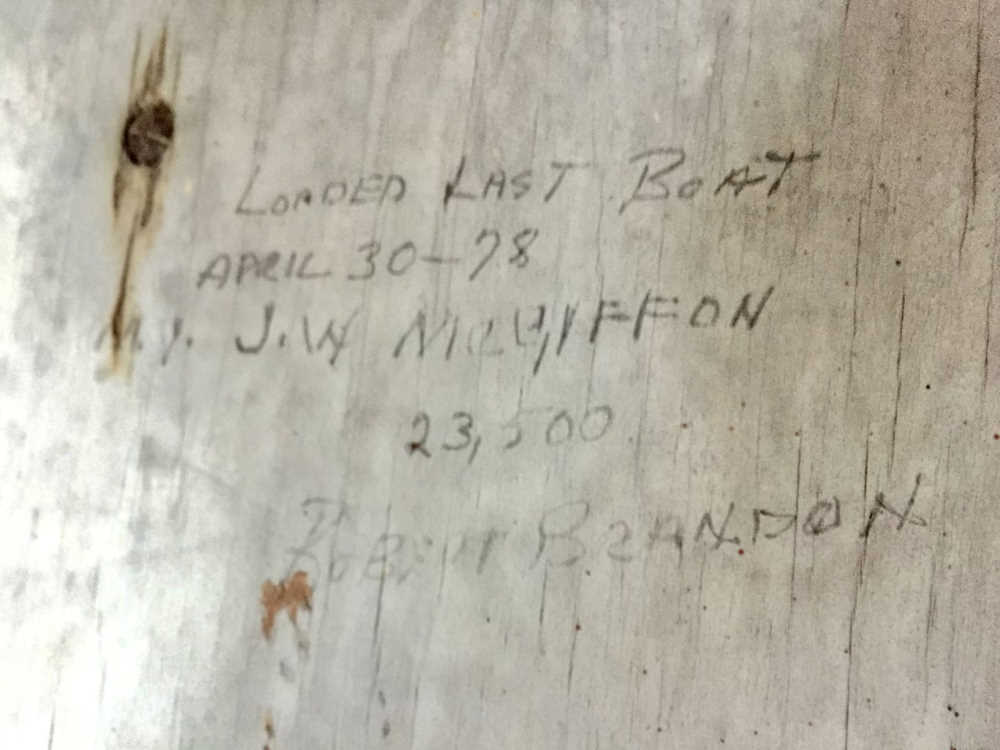 LOADED LAST BOAT
APRIL 30-78
M.V. J.W McGIFFON
23,500
ROBERT BRANDON